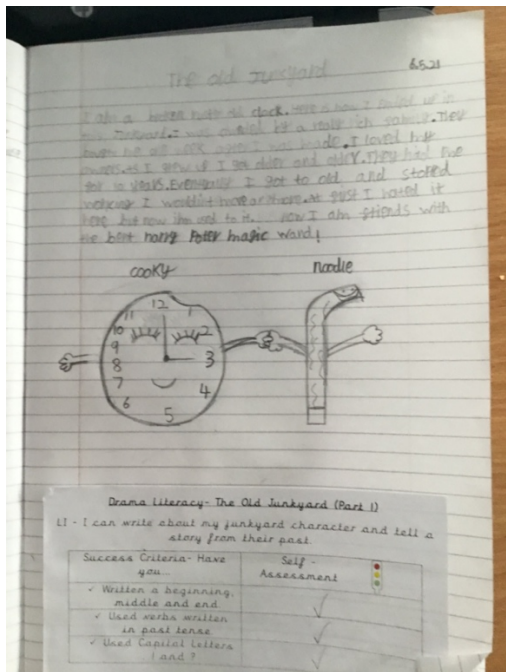 The old Junkyard
6.5.21
I am a broken clock. Here is how I ended up in
Junkyard. I was owned by a really rich family. They
bought me one week after I was made. I loved my
owners. As I grew up I got older and older. They had me
for 10 years. Eventually I got to old and stoped
working I wouldn't move or there. At first I hated it
here but now i'm used to it. now I am friends with
the bent harry Potter magic wand!
cooky
noodle
12
11 1
10 2
9 3
8 4
7
6 5
Drama Literacy- The Old Junkyard (Part 1)
LI - I can write about my junkyard character and tell a
story from their past.
Success Criteria- Have
you...
Self -
Assessment
✓ Written a beginning,
middle and end.
✓ Used verbs written
in past tense
✓ Used Capital Letters
! and ?